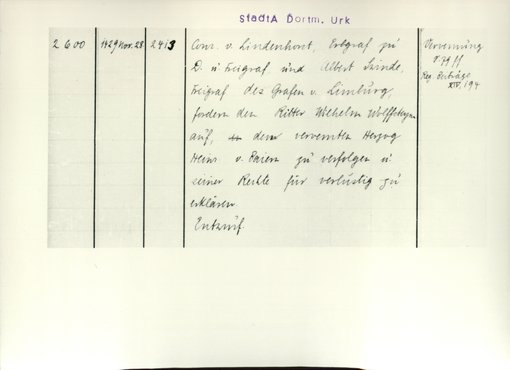 StadtA Dortm. Urk
2600 1429 Nov. 28 2413 Conr. v. Lindenhorst, Erbgraf zu Vervemung
D. u Freigraf, und Albert Swinde,
Freigraf des Grafen v. Limburg, Reg. Beiträge
fordern den Ritter Wilhelm Wolffsteyn XIV, 194
auf, den vervemten Herzog
Heinr. v. Baiern zu verfolgen u
seiner Rechte für verlustig zu
erklären
Entwurf.